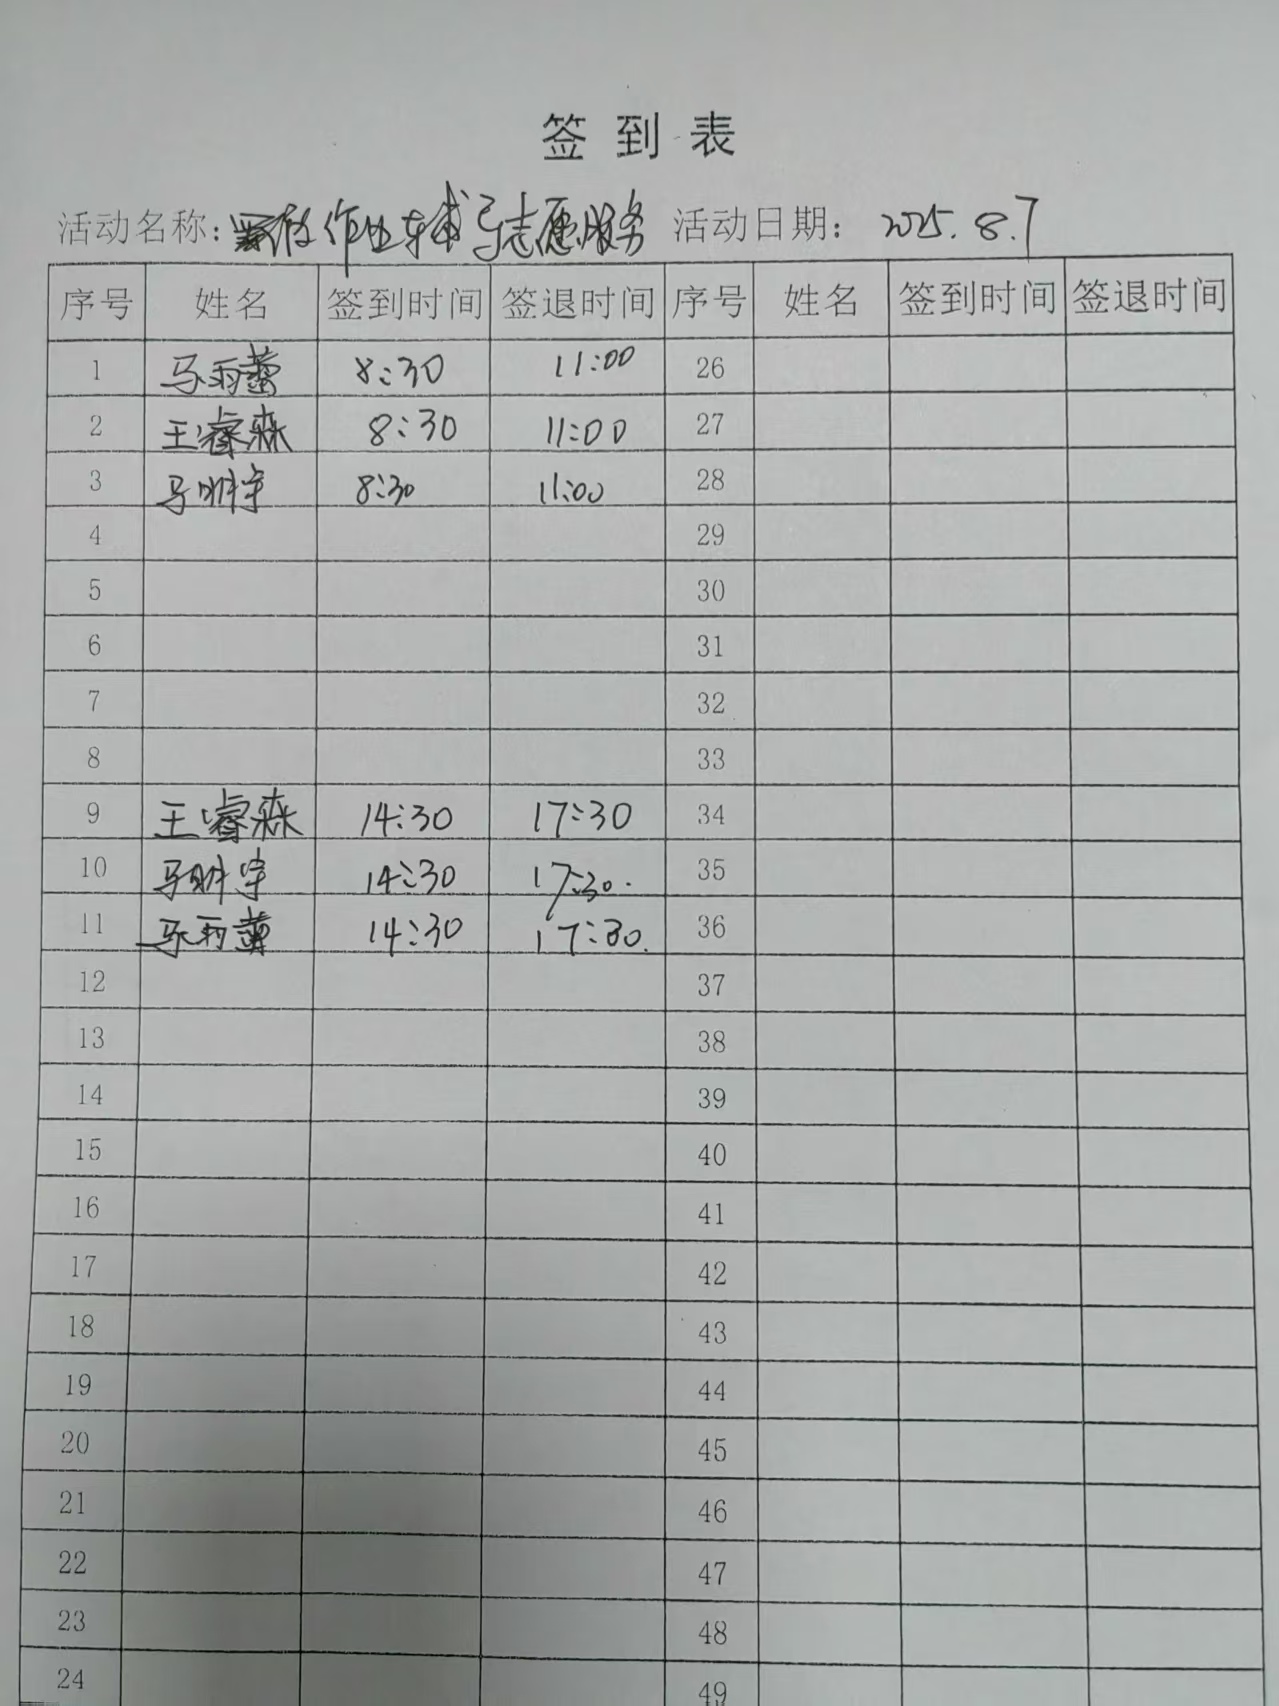 签到表
活动名称: 作业辅导志愿服务 活动日期: 2025.8.7
序号 姓名 签到时间 签退时间 序号 姓名 签到时间 签退时间
1 马雨蕾 8:30 11:00 26
2 王睿森 8:30 11:00 27
3 马明宇 8:30 11:00 28
4 29
5 30
6 31
7 32
8 33
9 王睿森 14:30 17:30 34
10 马明宇 14:30 17:30. 35
11 马雨蕾 14:30 17:30. 36
12 37
13 38
14 39
15 40
16 41
17 42
18 43
19 44
20 45
21 46
22 47
23 48
24 49